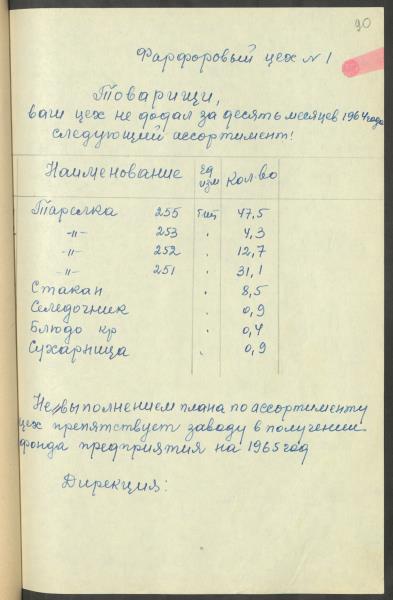 90
Фарфоровый цех № 1
Товарищи,
ваш цех не додал за десять месяцев 1964 года
следующий ассортимент!
Наименование Ед изм Кол-во
Тарелка 255 т.шт 47,5
-"- 253 . 4,3
-"- 252 . 12,7
-"- 251 . 31,1
Стакан . 8,5
Селедочник . 0,9
Блюдо кр . 0,4
Сухарница . 0,9
Невыполнением плана по ассортименту
цех препятствует заводу в получении
фонда предприятия на 1965 год
Дирекция: